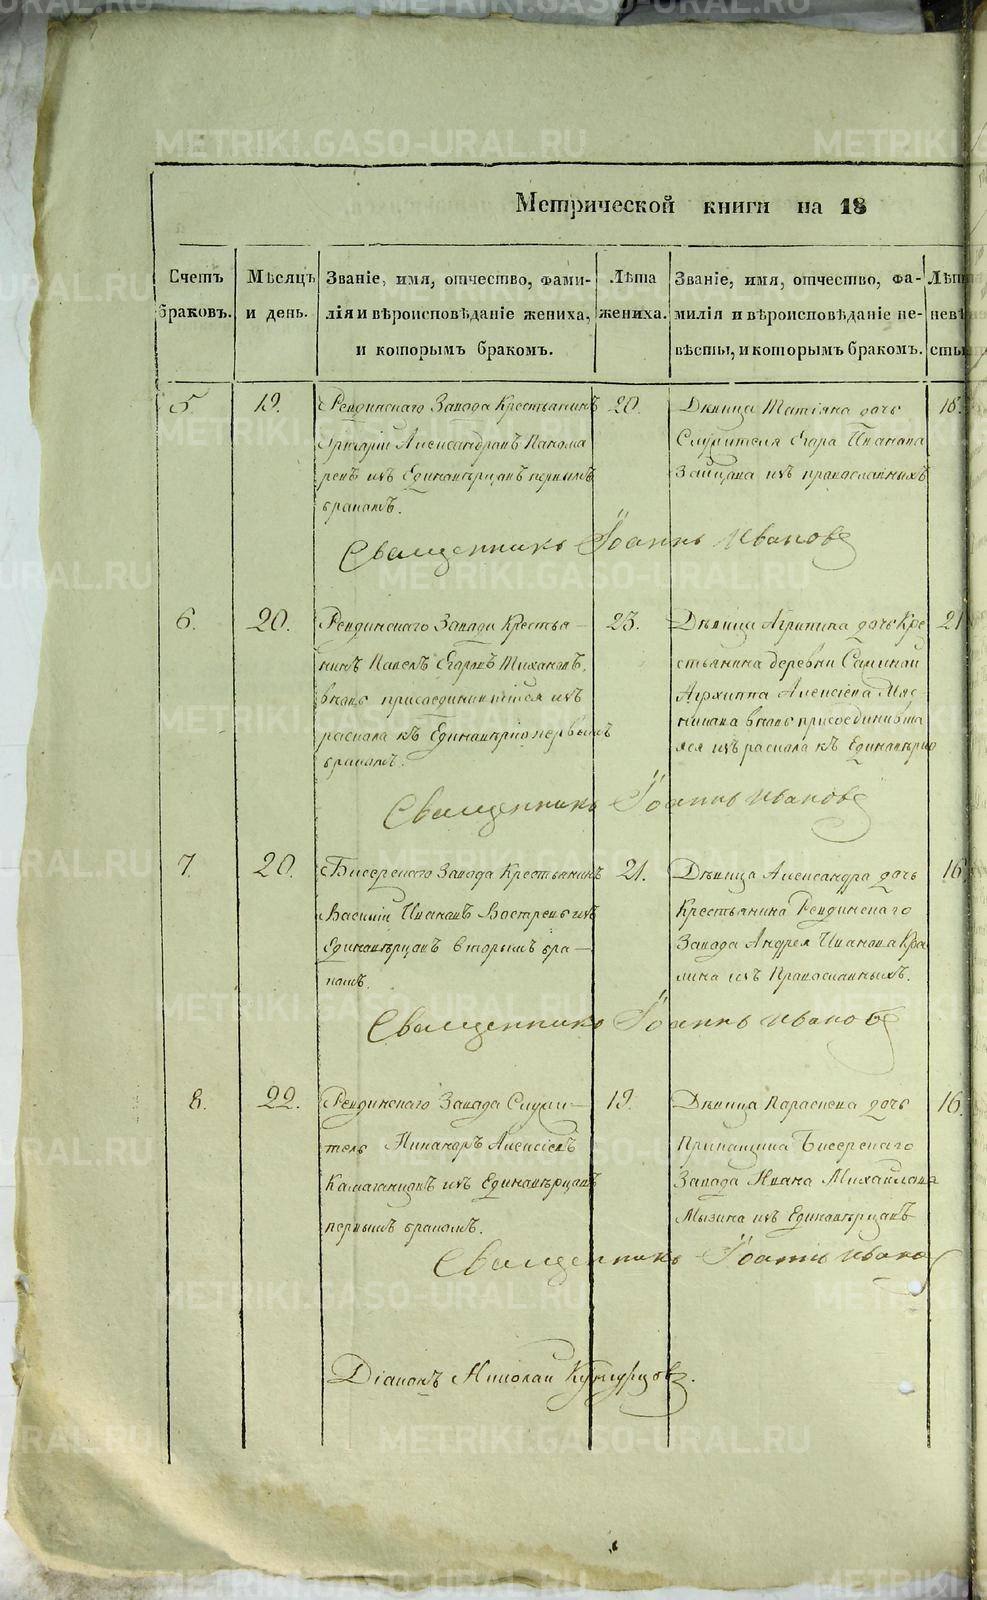 Метрической книги на 18
Счетъ браковъ.
Мѣсяцъ и день.
Званіе, имя, отчество, фами-
лія и вѣроисповѣданіе жениха,
и которымъ бракомъ.
Лѣта
жениха.
Званіе, имя, отчество, фа-
милія и вѣроисповѣданіе не-
вѣсты, и которымъ бракомъ.
Лѣт
невѣ
сты
5
19.
Ревдинскаго Завода Крестьянинъ
Григорій Александровъ Понома
ревъ изъ Единовѣрцовъ первымъ
бракомъ.
20.
Дѣвица Татіяна дочь
Служителя Егора Иванова
Зайцова изъ православныхъ
16.
Священникъ Іоаннъ Ивановъ
6.
20.
Ревдинскаго Завода Крестья-
нинъ Павелъ Егоровъ
вновь присоединившійся изъ
раскола къ Единовѣрію первымъ
бракомъ.
23.
Дѣвица Агрипина дочь Кре
стьянина деревни
Архиппа Алексіева Мяс
никова вновь присоединивша
яся изъ раскола къ Единовѣрію
21
Священникъ Іоаннъ Ивановъ
7.
20.
Бисерскаго Завода Крестьянинъ
Василій Ивановъ Востревъ изъ
Единовѣрцовъ вторымъ бра-
комъ.
21.
Дѣвица Александра дочь
Крестьянина Ревдинскаго
Завода Андрея Иванова Кра
лина изъ Православныхъ.
16.
Священникъ Іоаннъ Ивановъ
8.
22.
Ревдинскаго Завода Служи-
тель Никаноръ Алексіевъ
изъ Единовѣрцовъ
первымъ бракомъ.
19.
Дѣвица Параскева дочь
Прикащика Бисерскаго
Завода Ивана Михайлова
Мызина изъ Единовѣрцовъ
16.
Священникъ Іоаннъ Ивановъ
Діаконъ Николай Кунгурцовъ.
METRIKI.GASO-URAL.RU